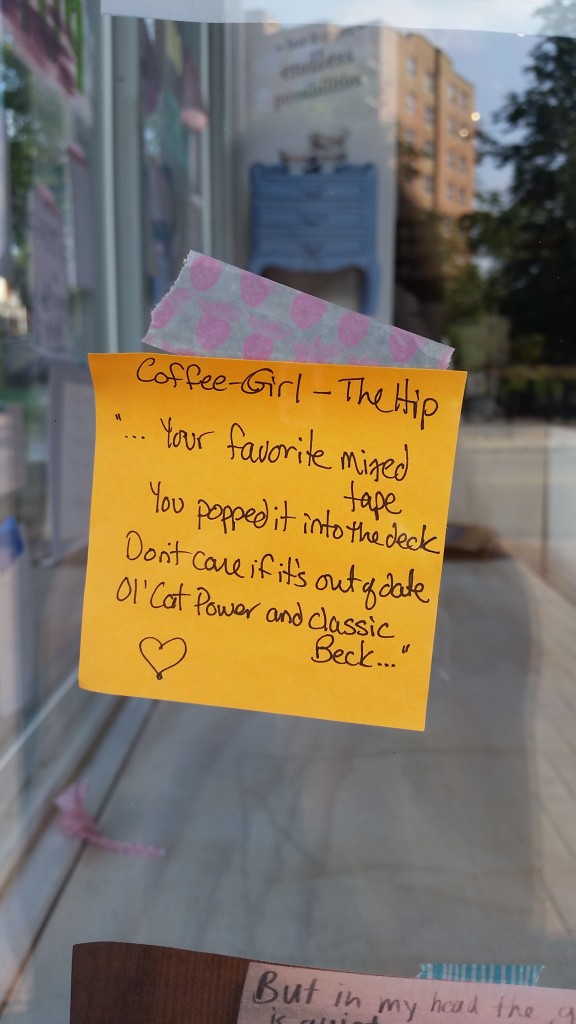 endless
possibilities
Coffee-Girl - The Hip
"... Your favorite mixed
tape
You popped it into the deck
Don't care if it's out of date
Ol' Cat Power and classic
Beck..."
But in my head the
is quiet